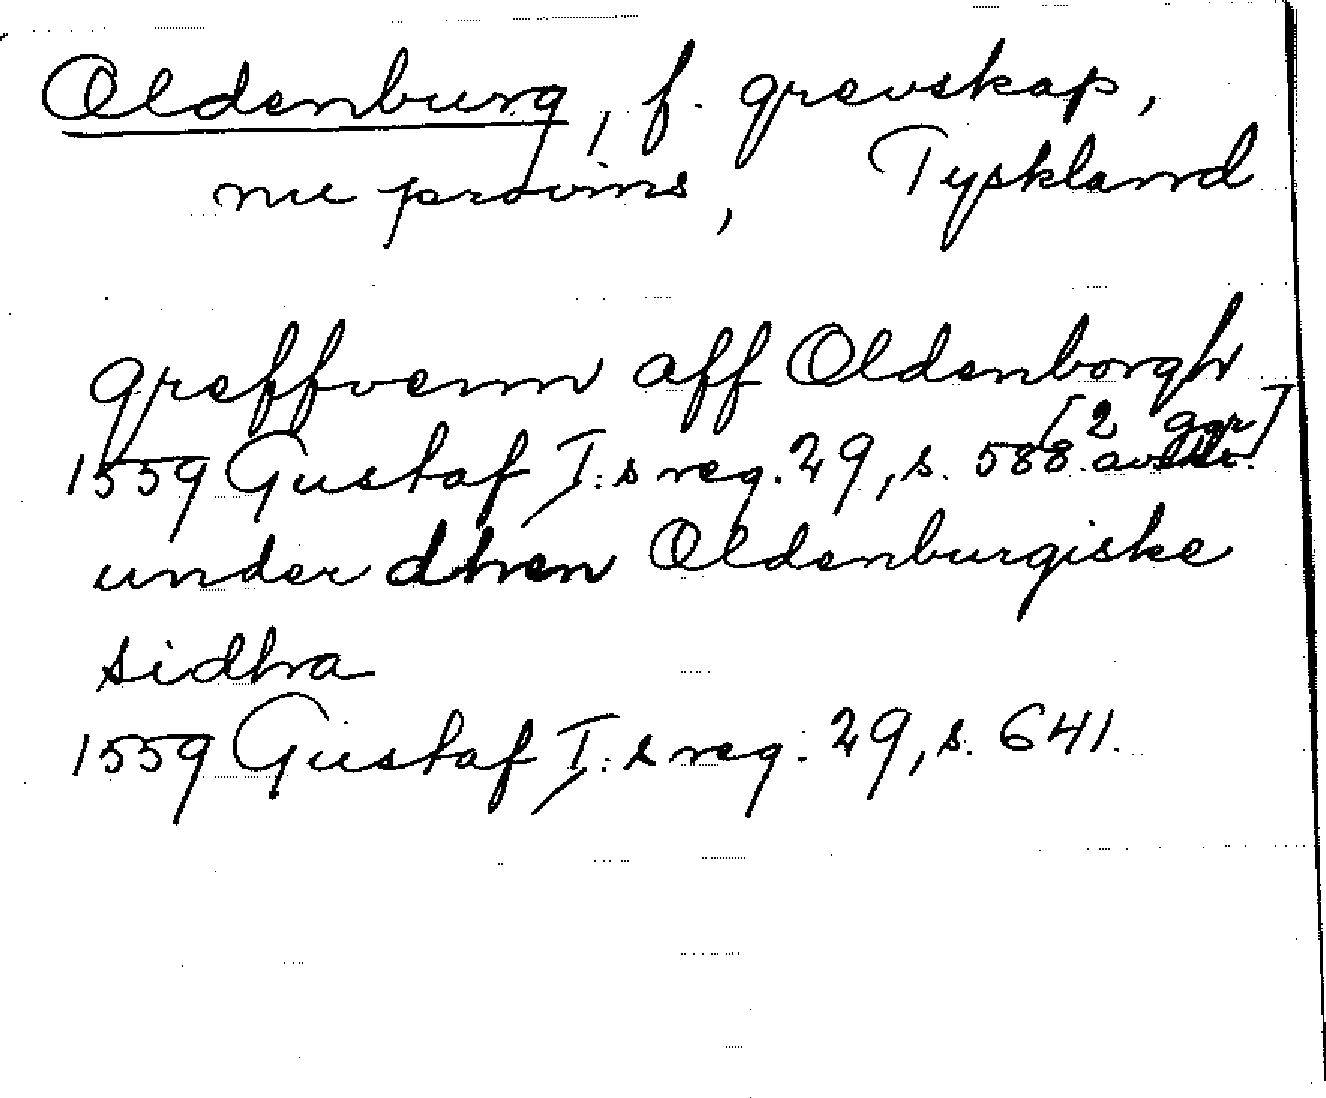 Oldenburg, f. grevskap,
nu provins, Tyskland
greffvenn aff Oldenborgh
[2 ggr]
1559 Gustaf I:s reg. 29, s. 588.
under dhen Oldenburgiske
sidha
1559 Gustaf I:s reg. 29, s. 641.